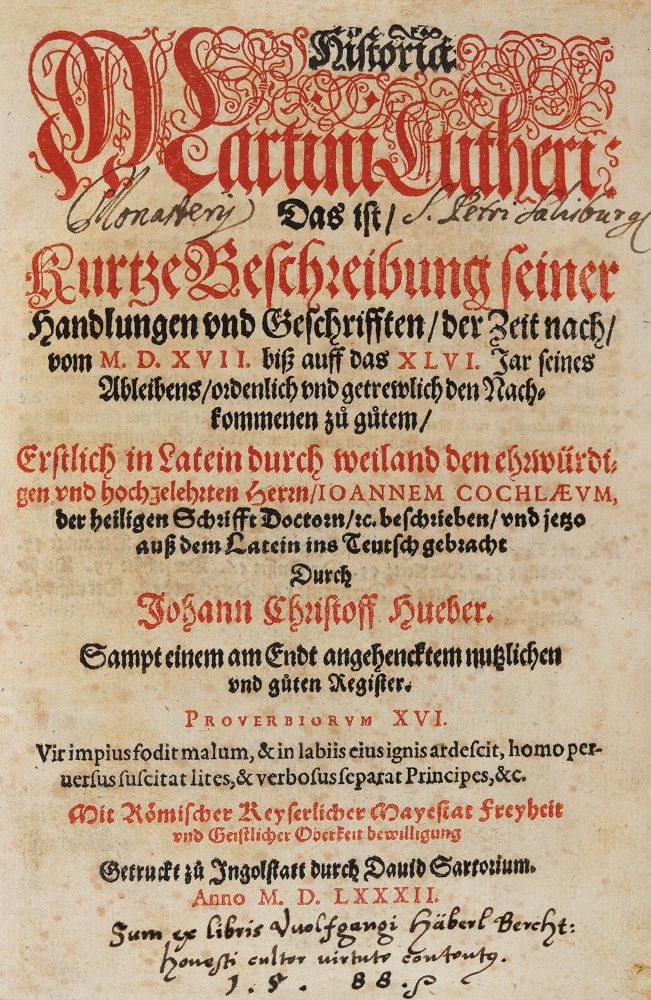 Historia
Martini Lutheri:
Monasterij S. Petri Salisburg
Das ist/
Kurtze Beschreibung seiner
Handlungen vnd Geschrifften/der Zeit nach/
vom M. D. XVII. biß auff das XLVI. Jar seines
Ableibens/ordenlich vnd getrewlich den Nach-
kommenen zů gůtem/
Erstlich in Latein durch weiland den ehrwürdi-
gen vnd hochgelehrten Herrn/IOANNEM COCHLÆVM,
der heiligen Schrifft Doctorn/ꝛc. beschrieben/vnd jetzo
auß dem Latein ins Teutsch gebracht
Durch
Johann Christoff Hueber.
Sampt einem am Endt angehencktem nutzlichen
vnd gůten Register.
PROVERBIORVM XVI.
Vir impius fodit malum, & in labiis eius ignis ardescit, homo per-
uersus suscitat lites, & verbosus separat Principes, &c.
Mit Römischer Keyserlicher Mayestat Freyheit
vnd Geistlicher Oberkeit bewilligung
Getruckt zů Ingolstatt durch Dauid Sartorium.
Anno M. D. LXXXII.
Sum ex libris Vuolfgangi Häberl Bercht:
honesti cultor virtute contentus.
1. 5. 88.